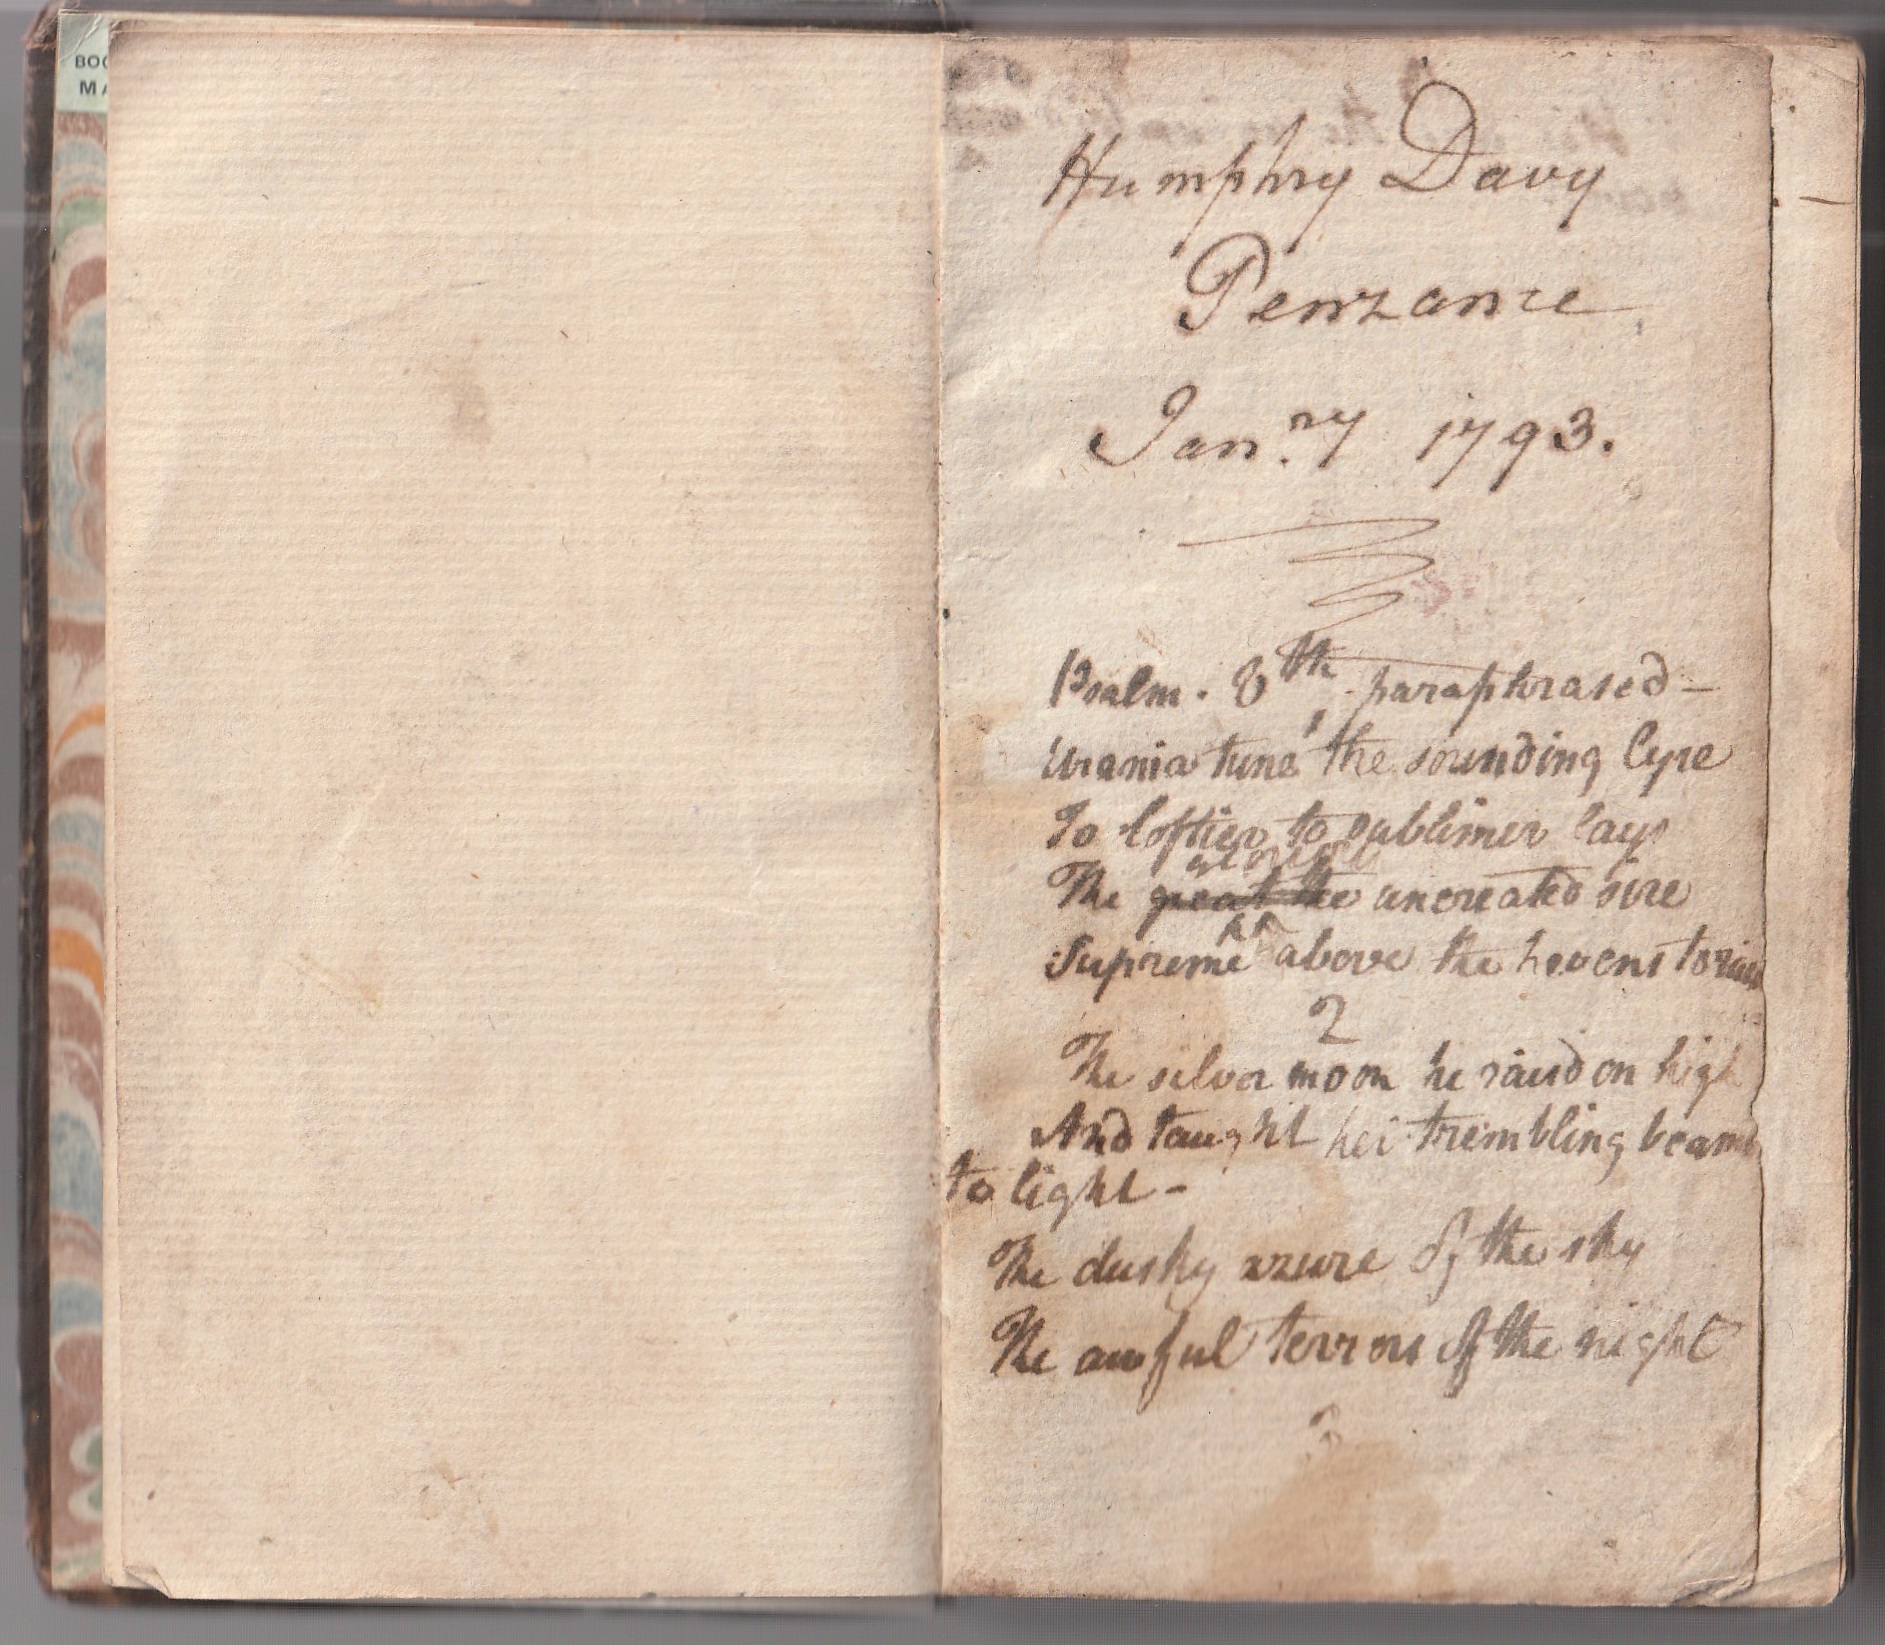 BOO
MA
Humphry Davy
Penzance
Jan.ry 1793.
Psalm. 8th paraphrased -
Urania tune the sounding lyre
To loftier to sublimer lays
The great the uncreated sire
Supreme above the hevens to
2
The silver moon he raisd on high
And taught her trembling beams
to light -
The dusky azure of the sky
The awful terrors of the night
3